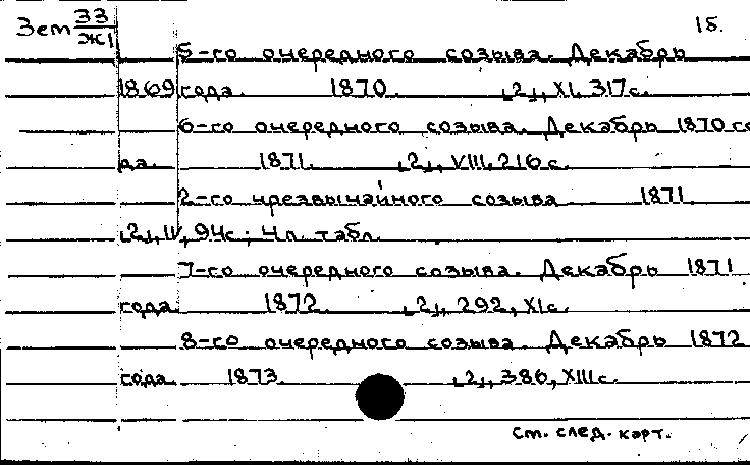 Зем 33 15.
Ж1
5-го очередного созыва. Декабрь
1869 года. 1870. [2], XI, 317с.
6-го очередного созыва. Декабрь 1870 го
да. 1871. [2], VIII, 216 с.
2-го чрезвычайного созыва 1871.
[2], IV, 94с.; 4 л. табл.
7-го очередного созыва. Декабрь 1871
года. 1872. [2], 292, XIс.
8-го очередного созыва. Декабрь 1872
года. 1873. [2], 386, XIIIс.
См. след. карт.